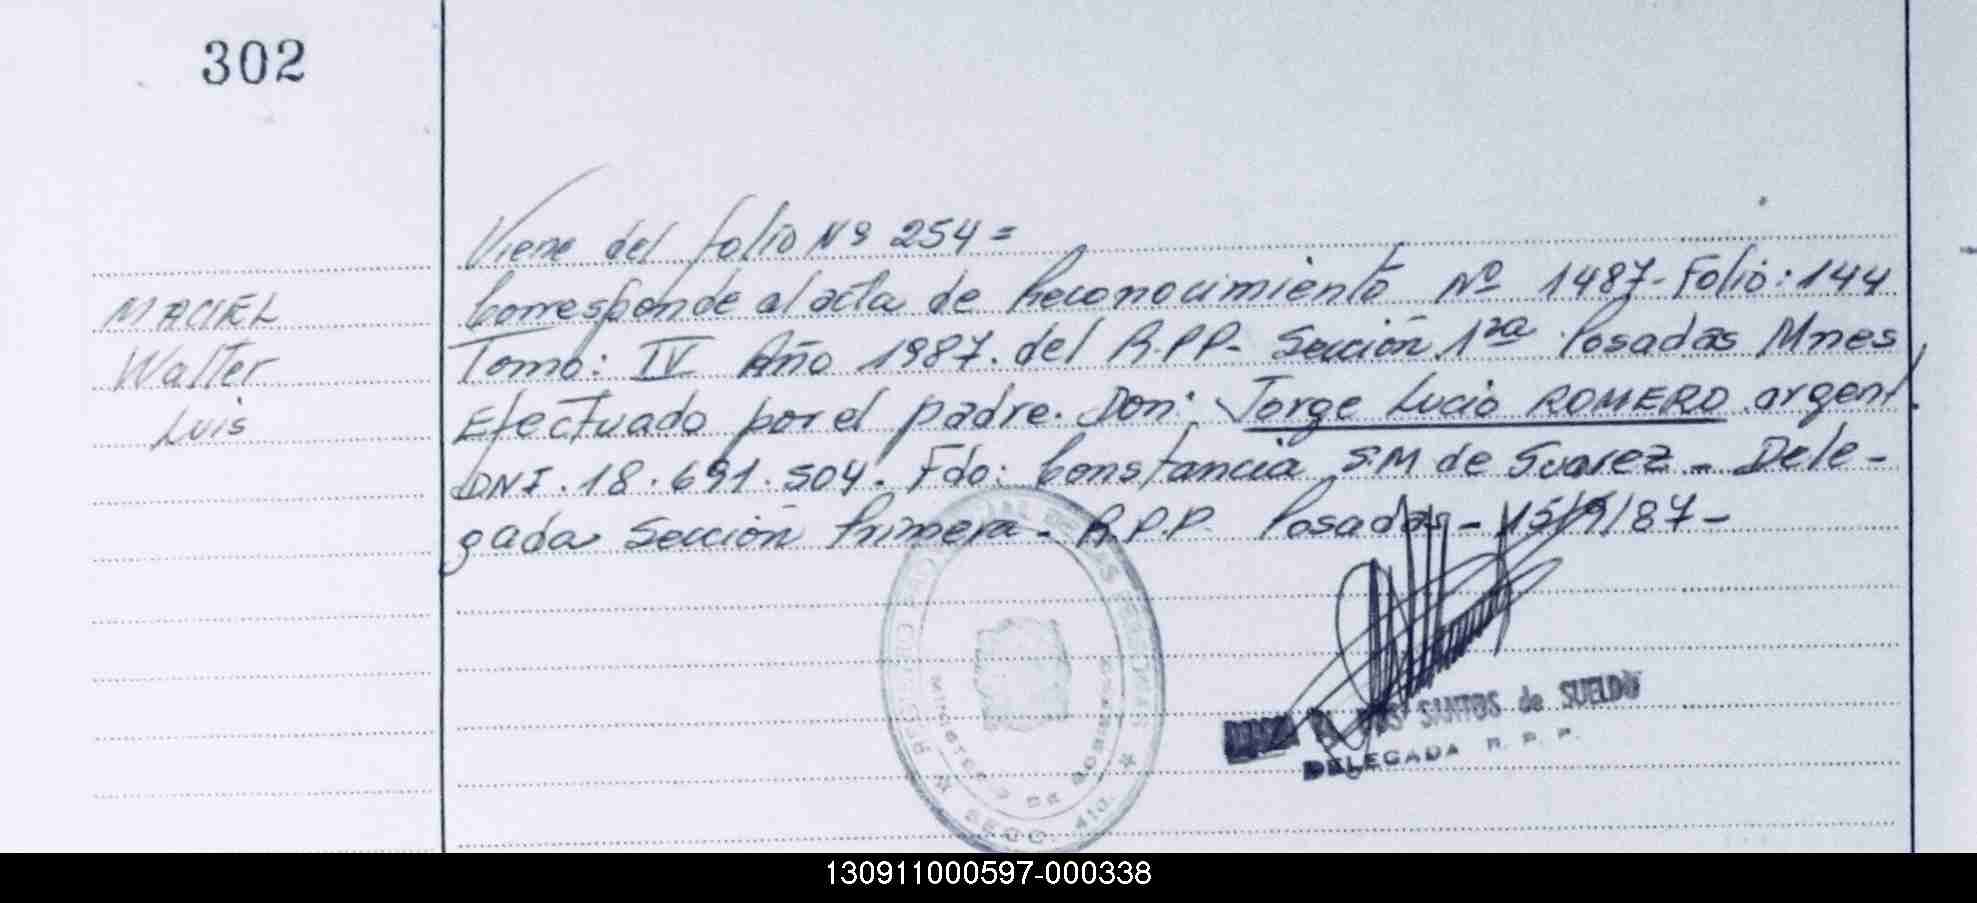 302
Viene del folio Nº 254=
MACIEL
Corresponde al acta de Reconocimiento Nº 1487-Folio: 144
Walter
Tomo: IV Año 1987. del R.P.P- Sección 1ra Posadas Mnes
Luis
Efectuado por el padre. Don: Jorge Lucio ROMERO argent.
DNI. 18.691.504. Fdo: Constancia S.M de Suarez - Dele-
gada Sección Primera - R.P.P. Posadas - 15/9/87-
SANTOS de SUELDO
DELEGADA R. P. P.
DE LAS PERSONAS
MINISTERIO DE GOBIERNO
SECC. 4ta.
130911000597-000338